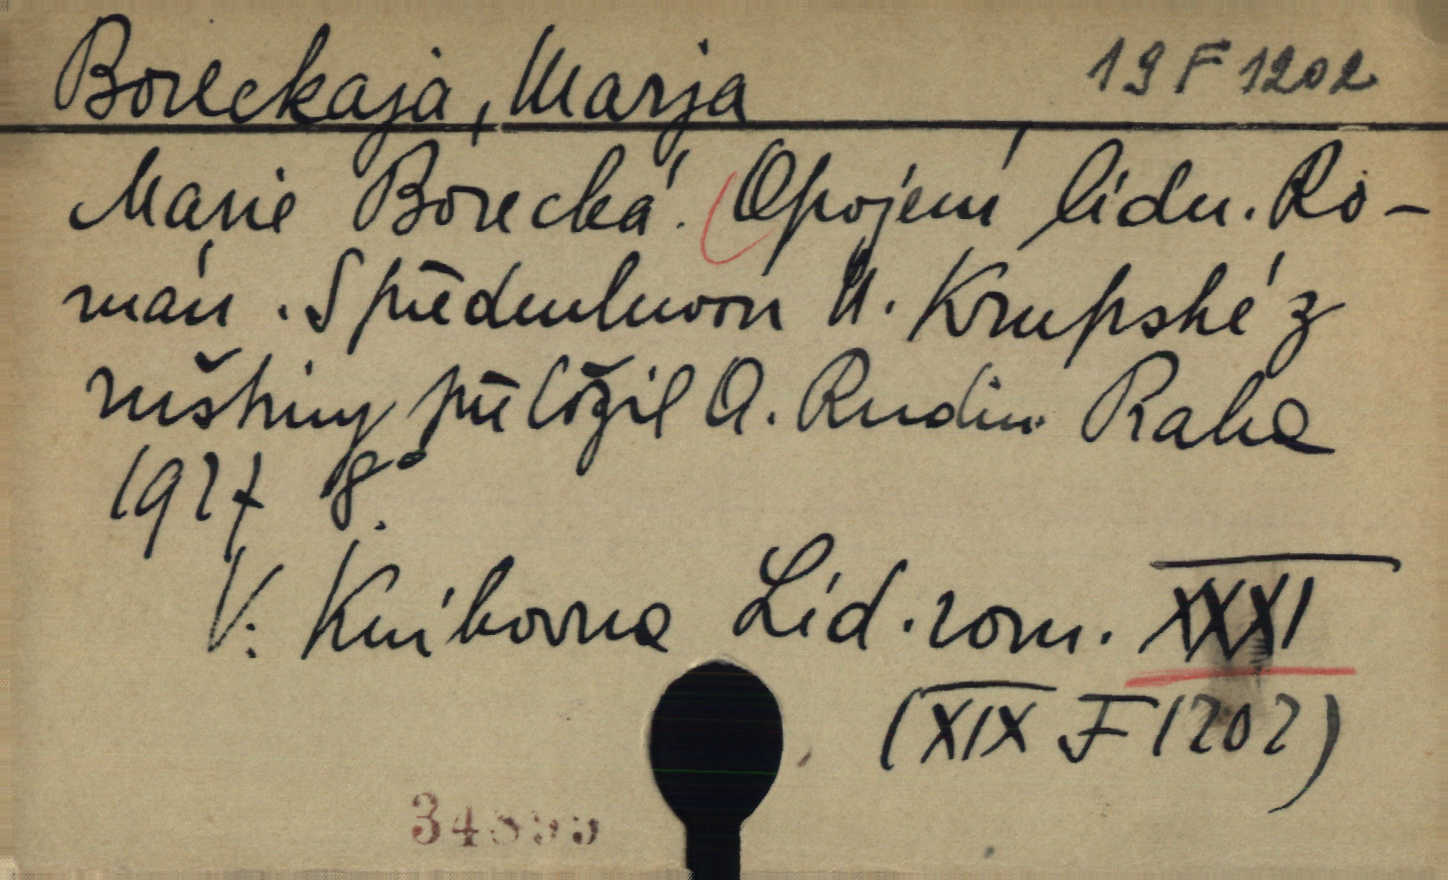 Boreckaja, Marja 19 F 1202
Marie Borecká. Opojení lidu. Ro-
mán. S předmluvou N. Krupské z
ruštiny přeložil A. Rudin. Praha
1927 8°.
V: Knihovna Lid. rom. XXXI
(XIX F 1202)